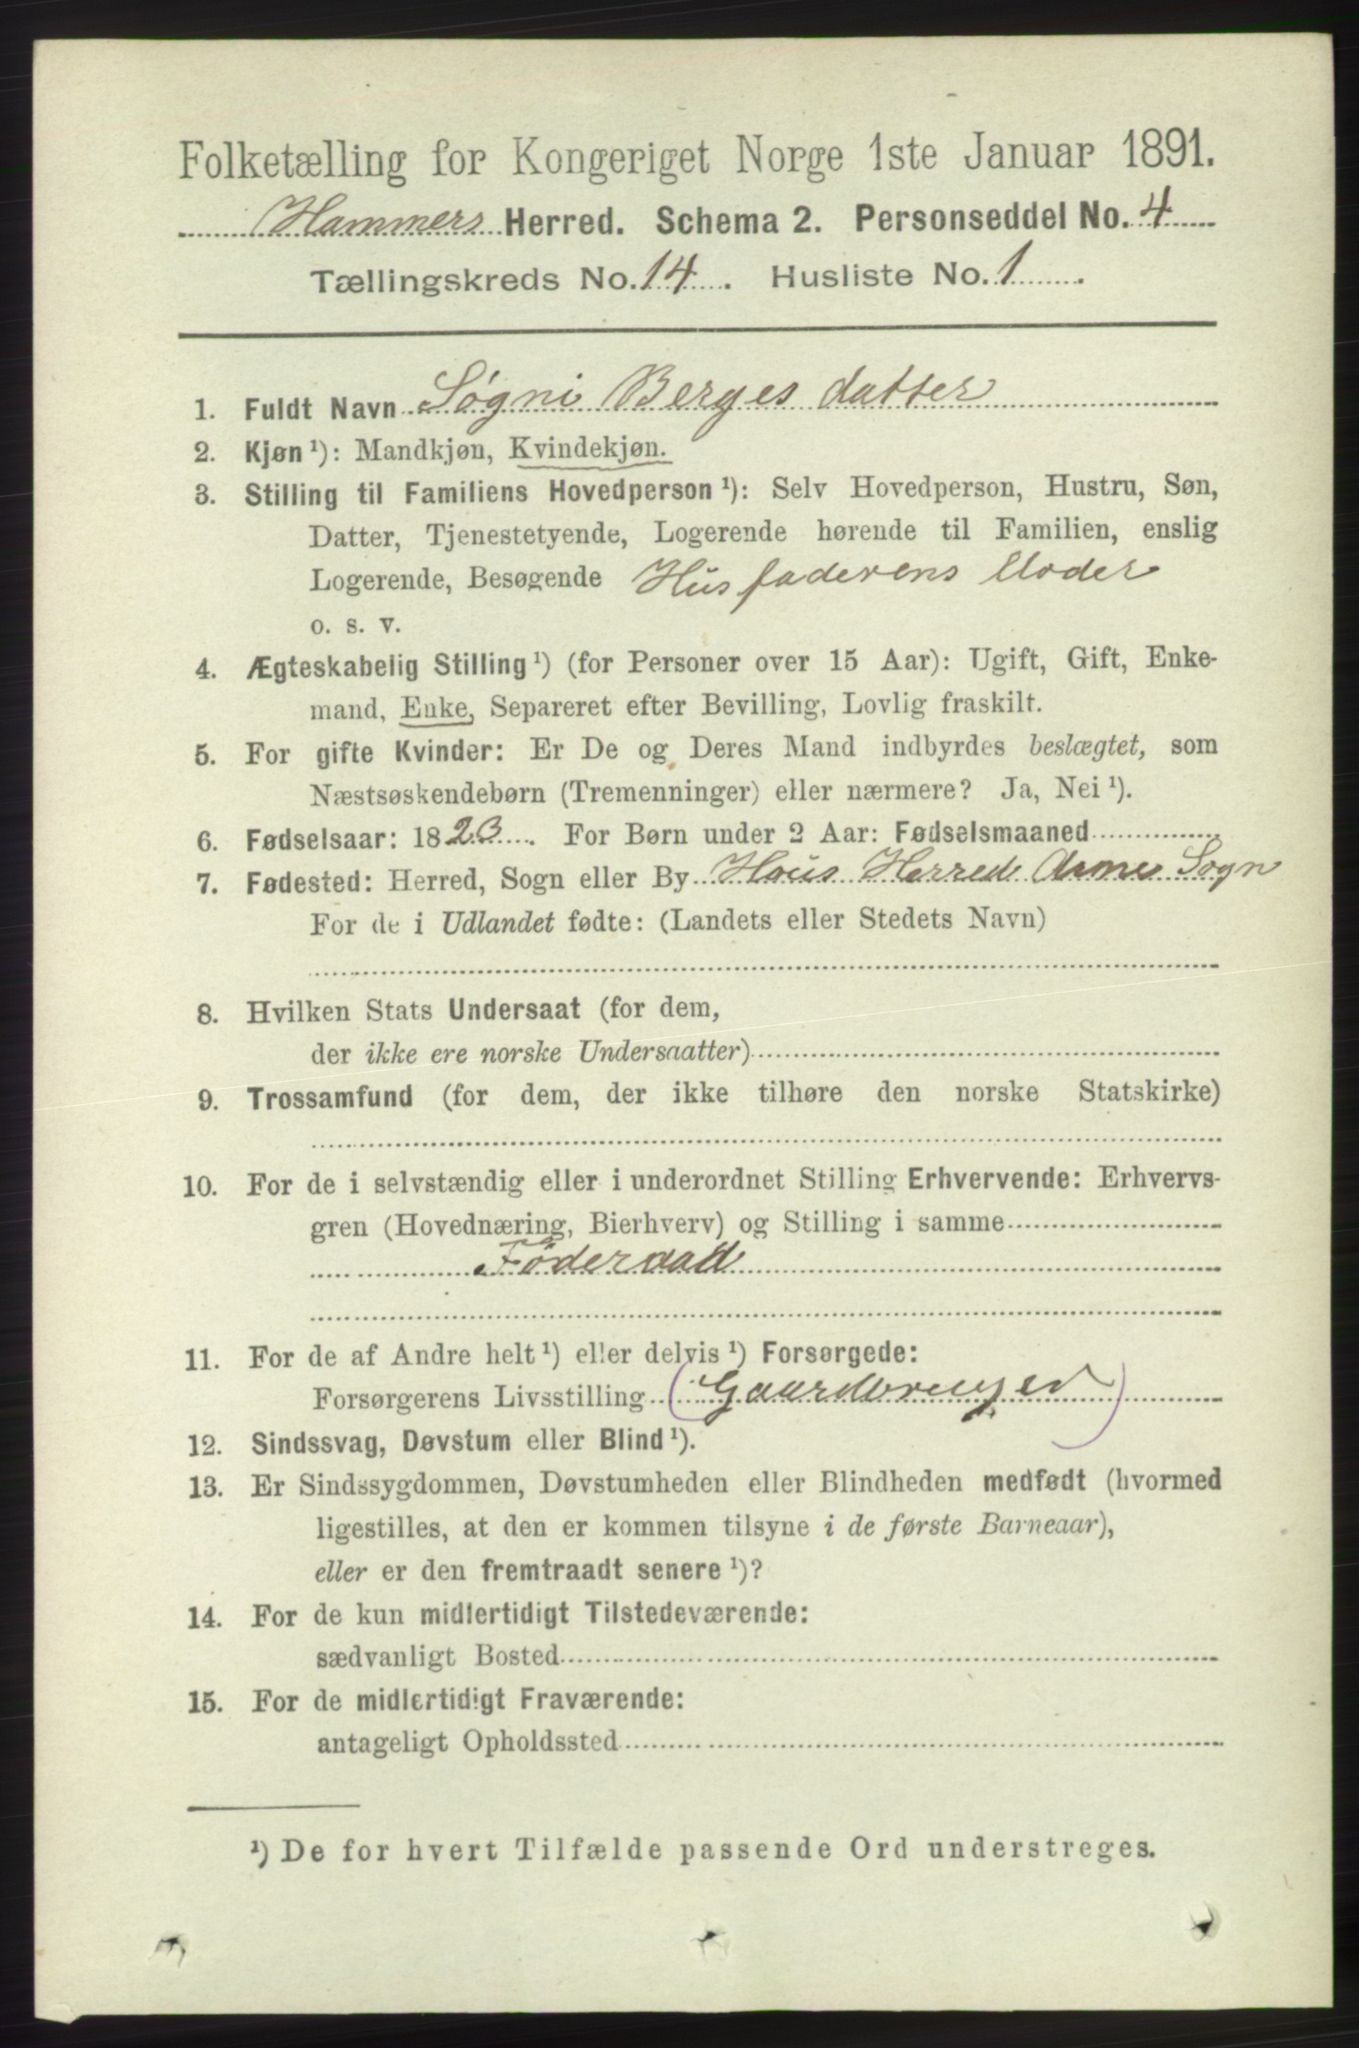 Folketælling for Kongeriget Norge 1ste Januar 1891.
Hammers Herred. Schema 2. Personseddel No. 4
Tællingskreds No. 14. Husliste No. 1.
1. Fuldt Navn Søgni Berges datter
2. Kjøn ¹): Mandkjøn, Kvindekjøn.
3. Stilling til Familiens Hovedperson ¹): Selv Hovedperson, Hustru, Søn,
Datter, Tjenestetyende, Logerende hørende til Familien, enslig
Logerende, Besøgende Husfaderens Moder
o. s. v.
4. Ægteskabelig Stilling ¹) (for Personer over 15 Aar): Ugift, Gift, Enke-
mand, Enke, Separeret efter Bevilling, Lovlig fraskilt.
5. For gifte Kvinder: Er De og Deres Mand indbyrdes beslægtet, som
Næstsøskendebørn (Tremenninger) eller nærmere? Ja, Nei ¹).
6. Fødselsaar: 1823. For Børn under 2 Aar: Fødselsmaaned
7. Fødested: Herred, Sogn eller By Hous Herred Arne Sogn
For de i Udlandet fødte: (Landets eller Stedets Navn)
8. Hvilken Stats Undersaat (for dem,
der ikke ere norske Undersaatter)
9. Trossamfund (for dem, der ikke tilhøre den norske Statskirke)
10. For de i selvstændig eller i underordnet Stilling Erhvervende: Erhvervs-
gren (Hovednæring, Bierhverv) og Stilling i samme
Føderaad
11. For de af Andre helt ¹) eller delvis ¹) Forsørgede:
Forsørgerens Livsstilling (Gaardbruger)
12. Sindssvag, Døvstum eller Blind ¹).
13. Er Sindssygdommen, Døvstumheden eller Blindheden medfødt (hvormed
ligestilles, at den er kommen tilsyne i de første Barneaar),
eller er den fremtraadt senere ¹)?
14. For de kun midlertidigt Tilstedeværende:
sædvanligt Bosted
15. For de midlertidigt Fraværende:
antageligt Opholdssted
¹) De for hvert Tilfælde passende Ord understreges.